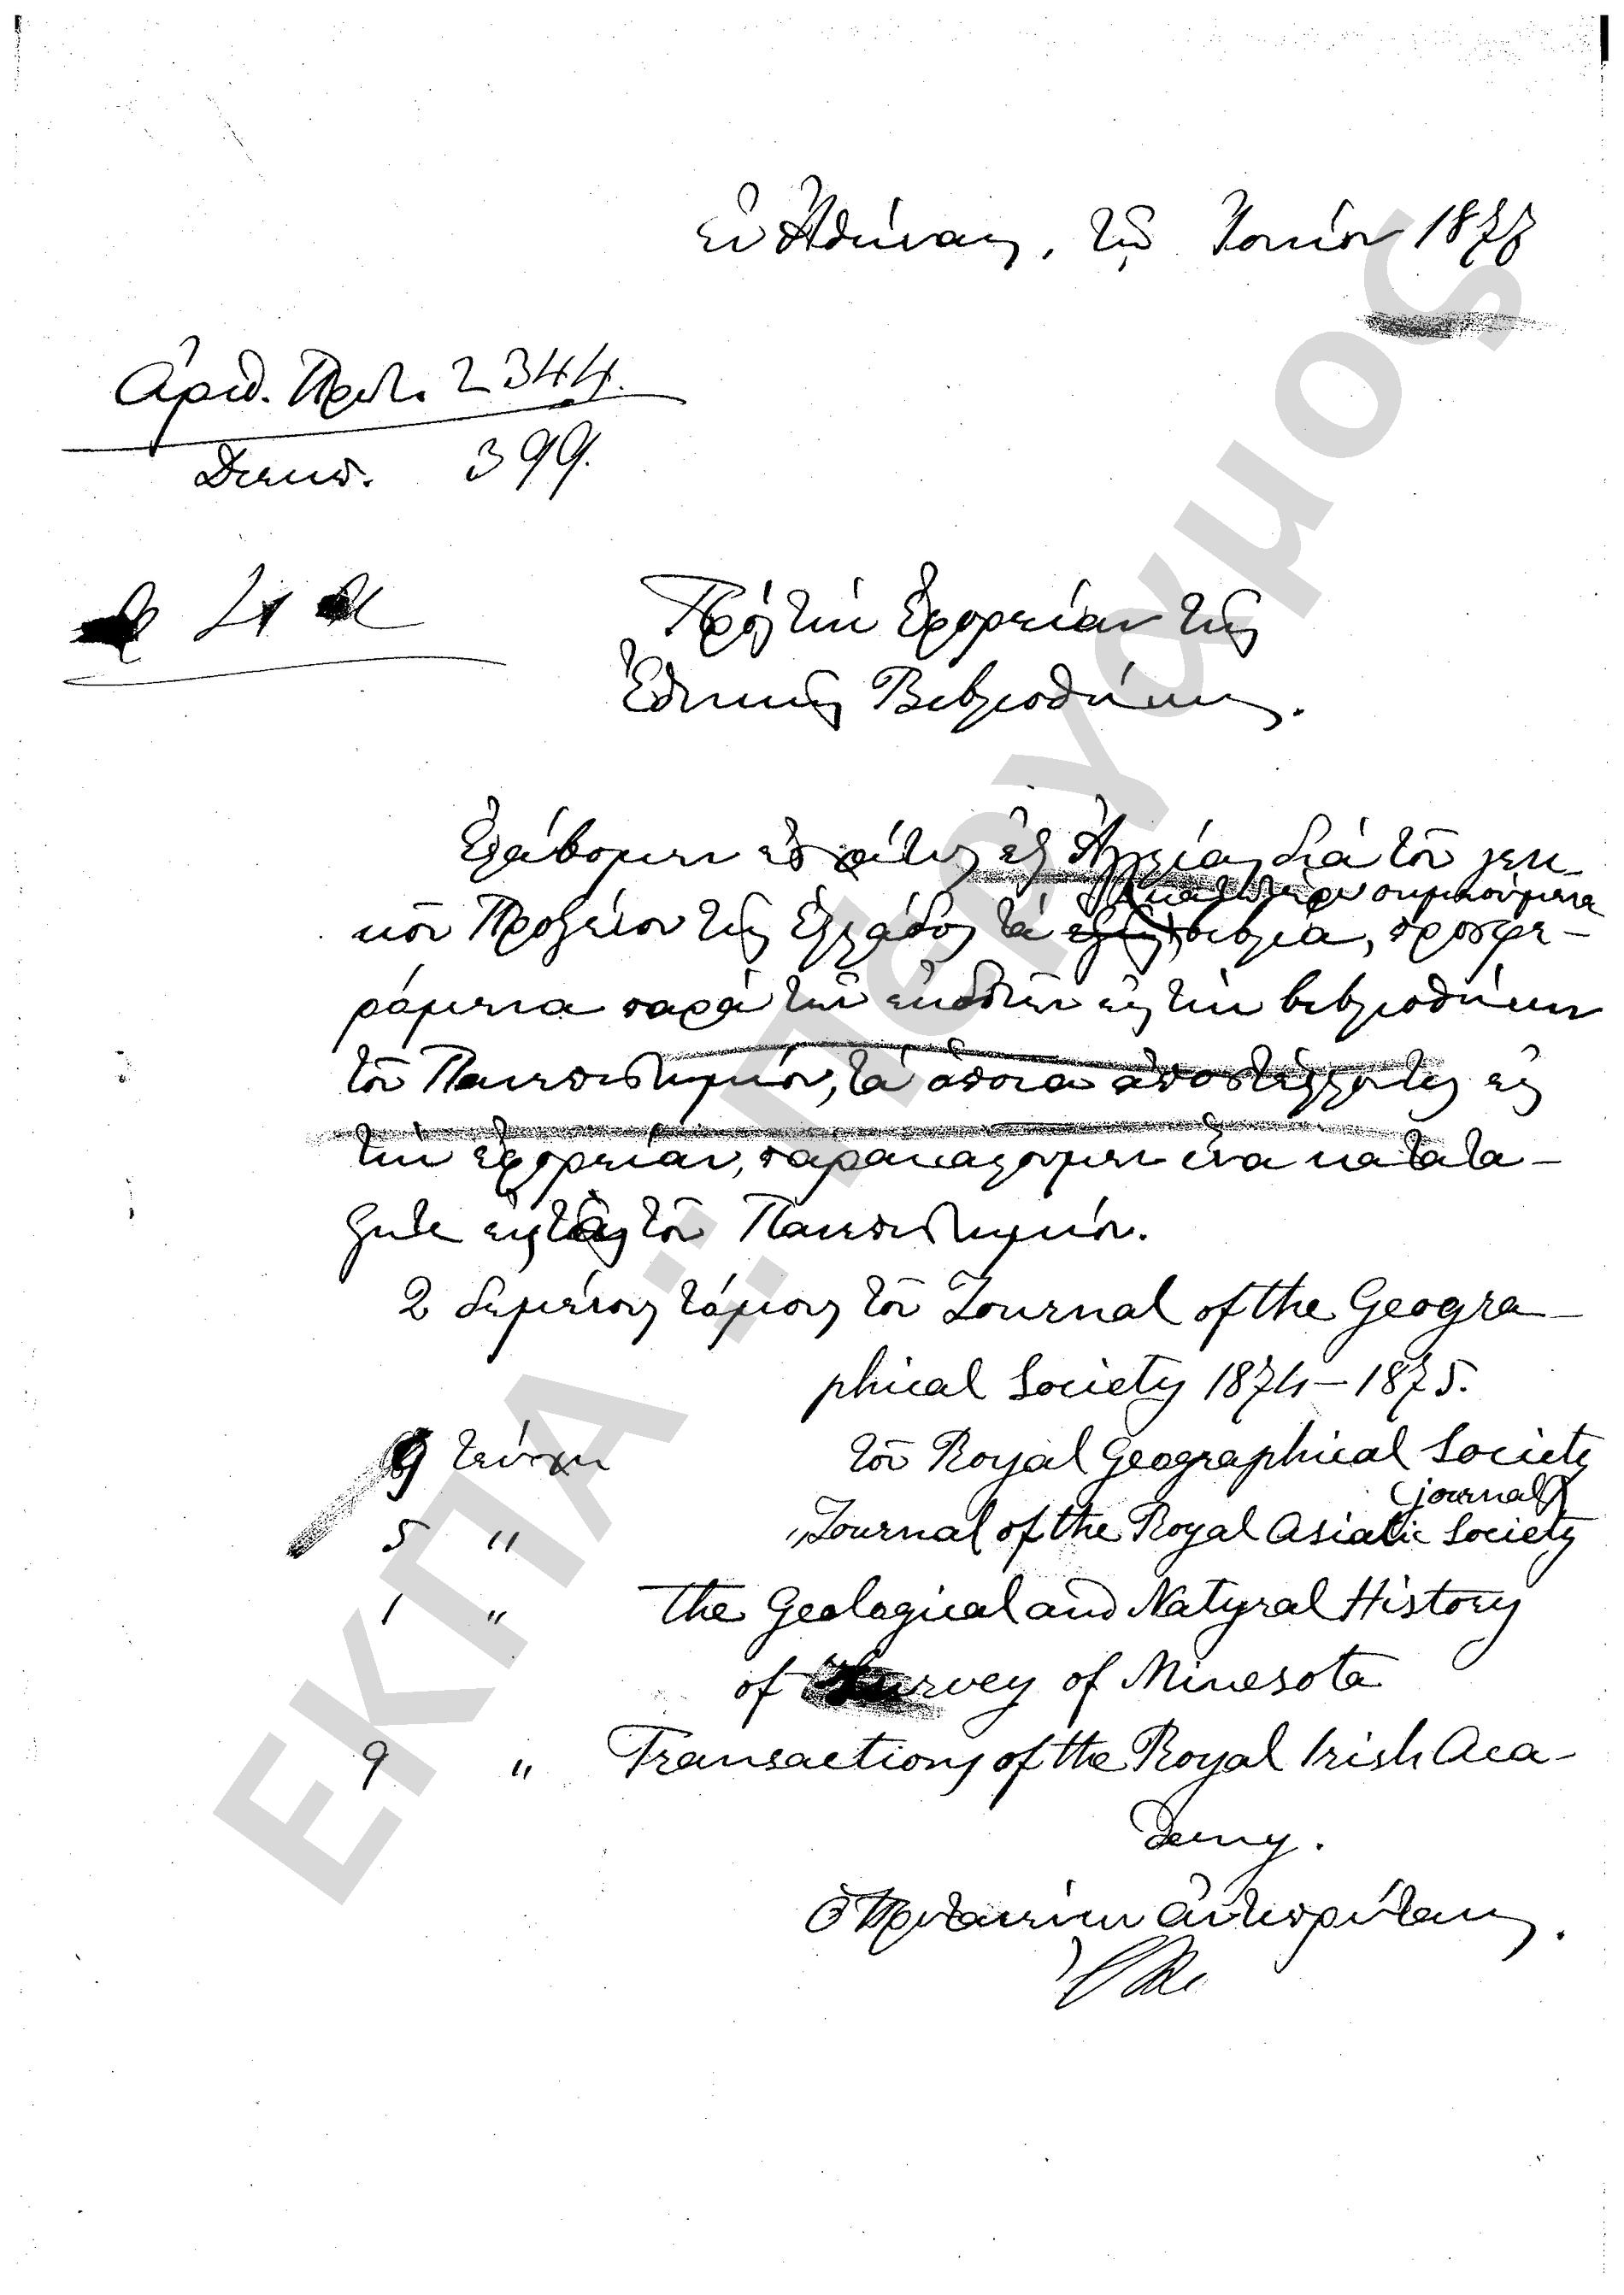 ἐν Ἀθήναις, τῇ Ἰουνίου 1877
Ἀριθ. Πρωτ. 2344.
Διεκπ. 399.
Πρὸς τὴν Ἐφορείαν τῆς
Ἐθνικῆς Βιβλιοθήκης.
Ἐλάβομεν ἐξ Ἀγγλίας διὰ τοῦ γενι-
κοῦ Προξενείου τῆς Ἑλλάδος τὰ ἑξῆς κατωτέρω σημειούμενα βιβλία, προσφε-
ρόμενα παρὰ τῶν ἐκδοτῶν εἰς τὴν βιβλιοθήκην
τοῦ Πανεπιστημίου, τὰ ὁποῖα ἀποστέλλοντες εἰς
τὴν ἐφορείαν, παρακαλοῦμεν ἵνα κατατά-
ξητε εἰς τοῦ Πανεπιστημίου.
2 δεμένους τόμους τοῦ Journal of the Geogra-
phical Society 1874-1875.
9 τεύχη τοῦ Royal Geographical Society
(journal)
5 " Journal of the Royal Asiatic Society
1 " The Geological and Natyral History
of Survey of Minesota
9 " Transactions of the Royal Irish Aca-
demy.
Ὁ Πρυτανεύων ἀντιπρύτανις.
ΕΚΠΑ :: Πέργαμος